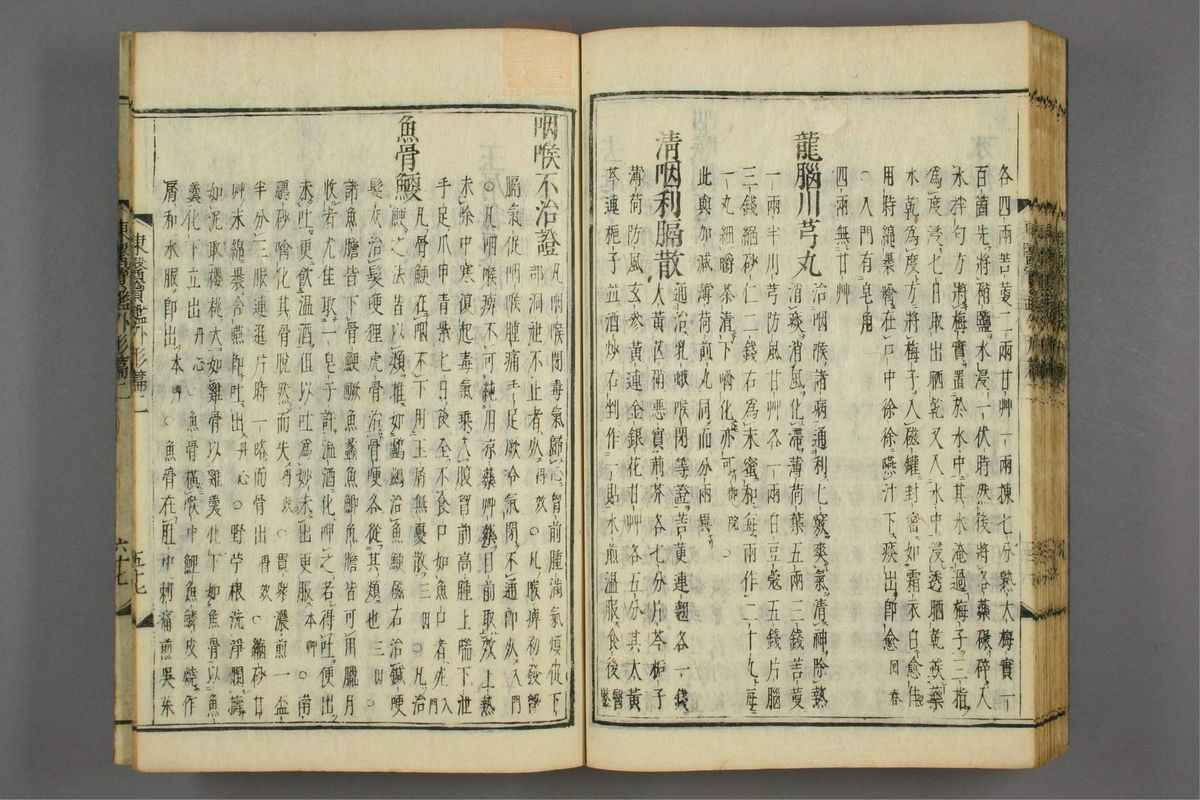 各四兩苦蔞二兩甘艸一兩揀七分熟大梅實一
百箇先將硝鹽水浸一伏時然後將各藥碾碎入
水拌勻方將梅實置於水中其水淹過梅子三指
爲度浸七日取出晒乾又入水中浸透晒乾候藥
水乾爲度方將梅子入磁罐封密如霜衣白愈佳
用時綿裹噙在口中徐徐嚥汁下痰出卽愈 回春
○入門有皂角
四兩無甘艸
龍腦川芎丸 治咽喉諸病通利七竅爽氣淸神除熱
消痰消風化滯薄荷葉五兩三錢苦蔞
一兩半川芎防風甘艸各一兩白豆蔲五錢片腦
三錢縮砂二錢右爲末蜜和每兩作二十丸每
一丸細嚼茶淸下嚼化亦可 御院
此與加減薄荷煎丸同而分兩異
淸咽利膈散 通治乳蛾喉閉等證苦黃連翹各一錢
大黃芒硝惡實荊芥各七分片芩梔子
薄荷防風玄參黃連金銀花甘艸各五分其大黃
芩連梔子並酒炒右剉作一貼水煎溫服食後 醫鑑
咽喉不治證 凡咽喉閉毒氣歸心胷前腫滿氣煩促下
部洞泄不止者死 得效 ○凡喉痺初發暫
膈氣促咽喉腫痛手足厥冷氣閉不通卽死 入門
○凡咽喉痺不可純用涼藥艸藥目前取效上熱
未除中寒復起毒氣乘入腹胷前高腫上喘下泄
手足爪甲靑紫七日後全不食口如魚口者死 入門
魚骨鯁 凡骨鯁在咽不下用玉屑無憂散 三因 ○凡治
鯁之法皆以類推如鸕鷀治魚鯁磁石治鍼哽
髮灰治髮哽狸虎骨治骨哽各從其類也 三因 ○
諸魚膽皆下骨鯁鱖魚蠡魚鯽魚膽皆可用臘月
收者尤佳取一皂子許溫酒化呷之若得吐便出
未吐更飮溫酒但以吐爲妙未出更服 本艸 ○南
鵬砂噙化其骨脫然而失 得效 ○貫衆濃煎一盞
半分三服連進片時一咯而骨出 得效 ○縮砂甘
艸末綿裹含嚥卽吐出 丹心 ○野苧根洗淨爛擣
如泥取櫻桃大如雞骨以雞羹化下如魚骨以魚
羹化下立出 丹心 ○魚骨橫喉中鯽魚鱗皮燒作
屑和水服卽出 本艸 ○魚骨在肚中刺痛煎吳茱
東醫寶鑑外形篇二
五十七